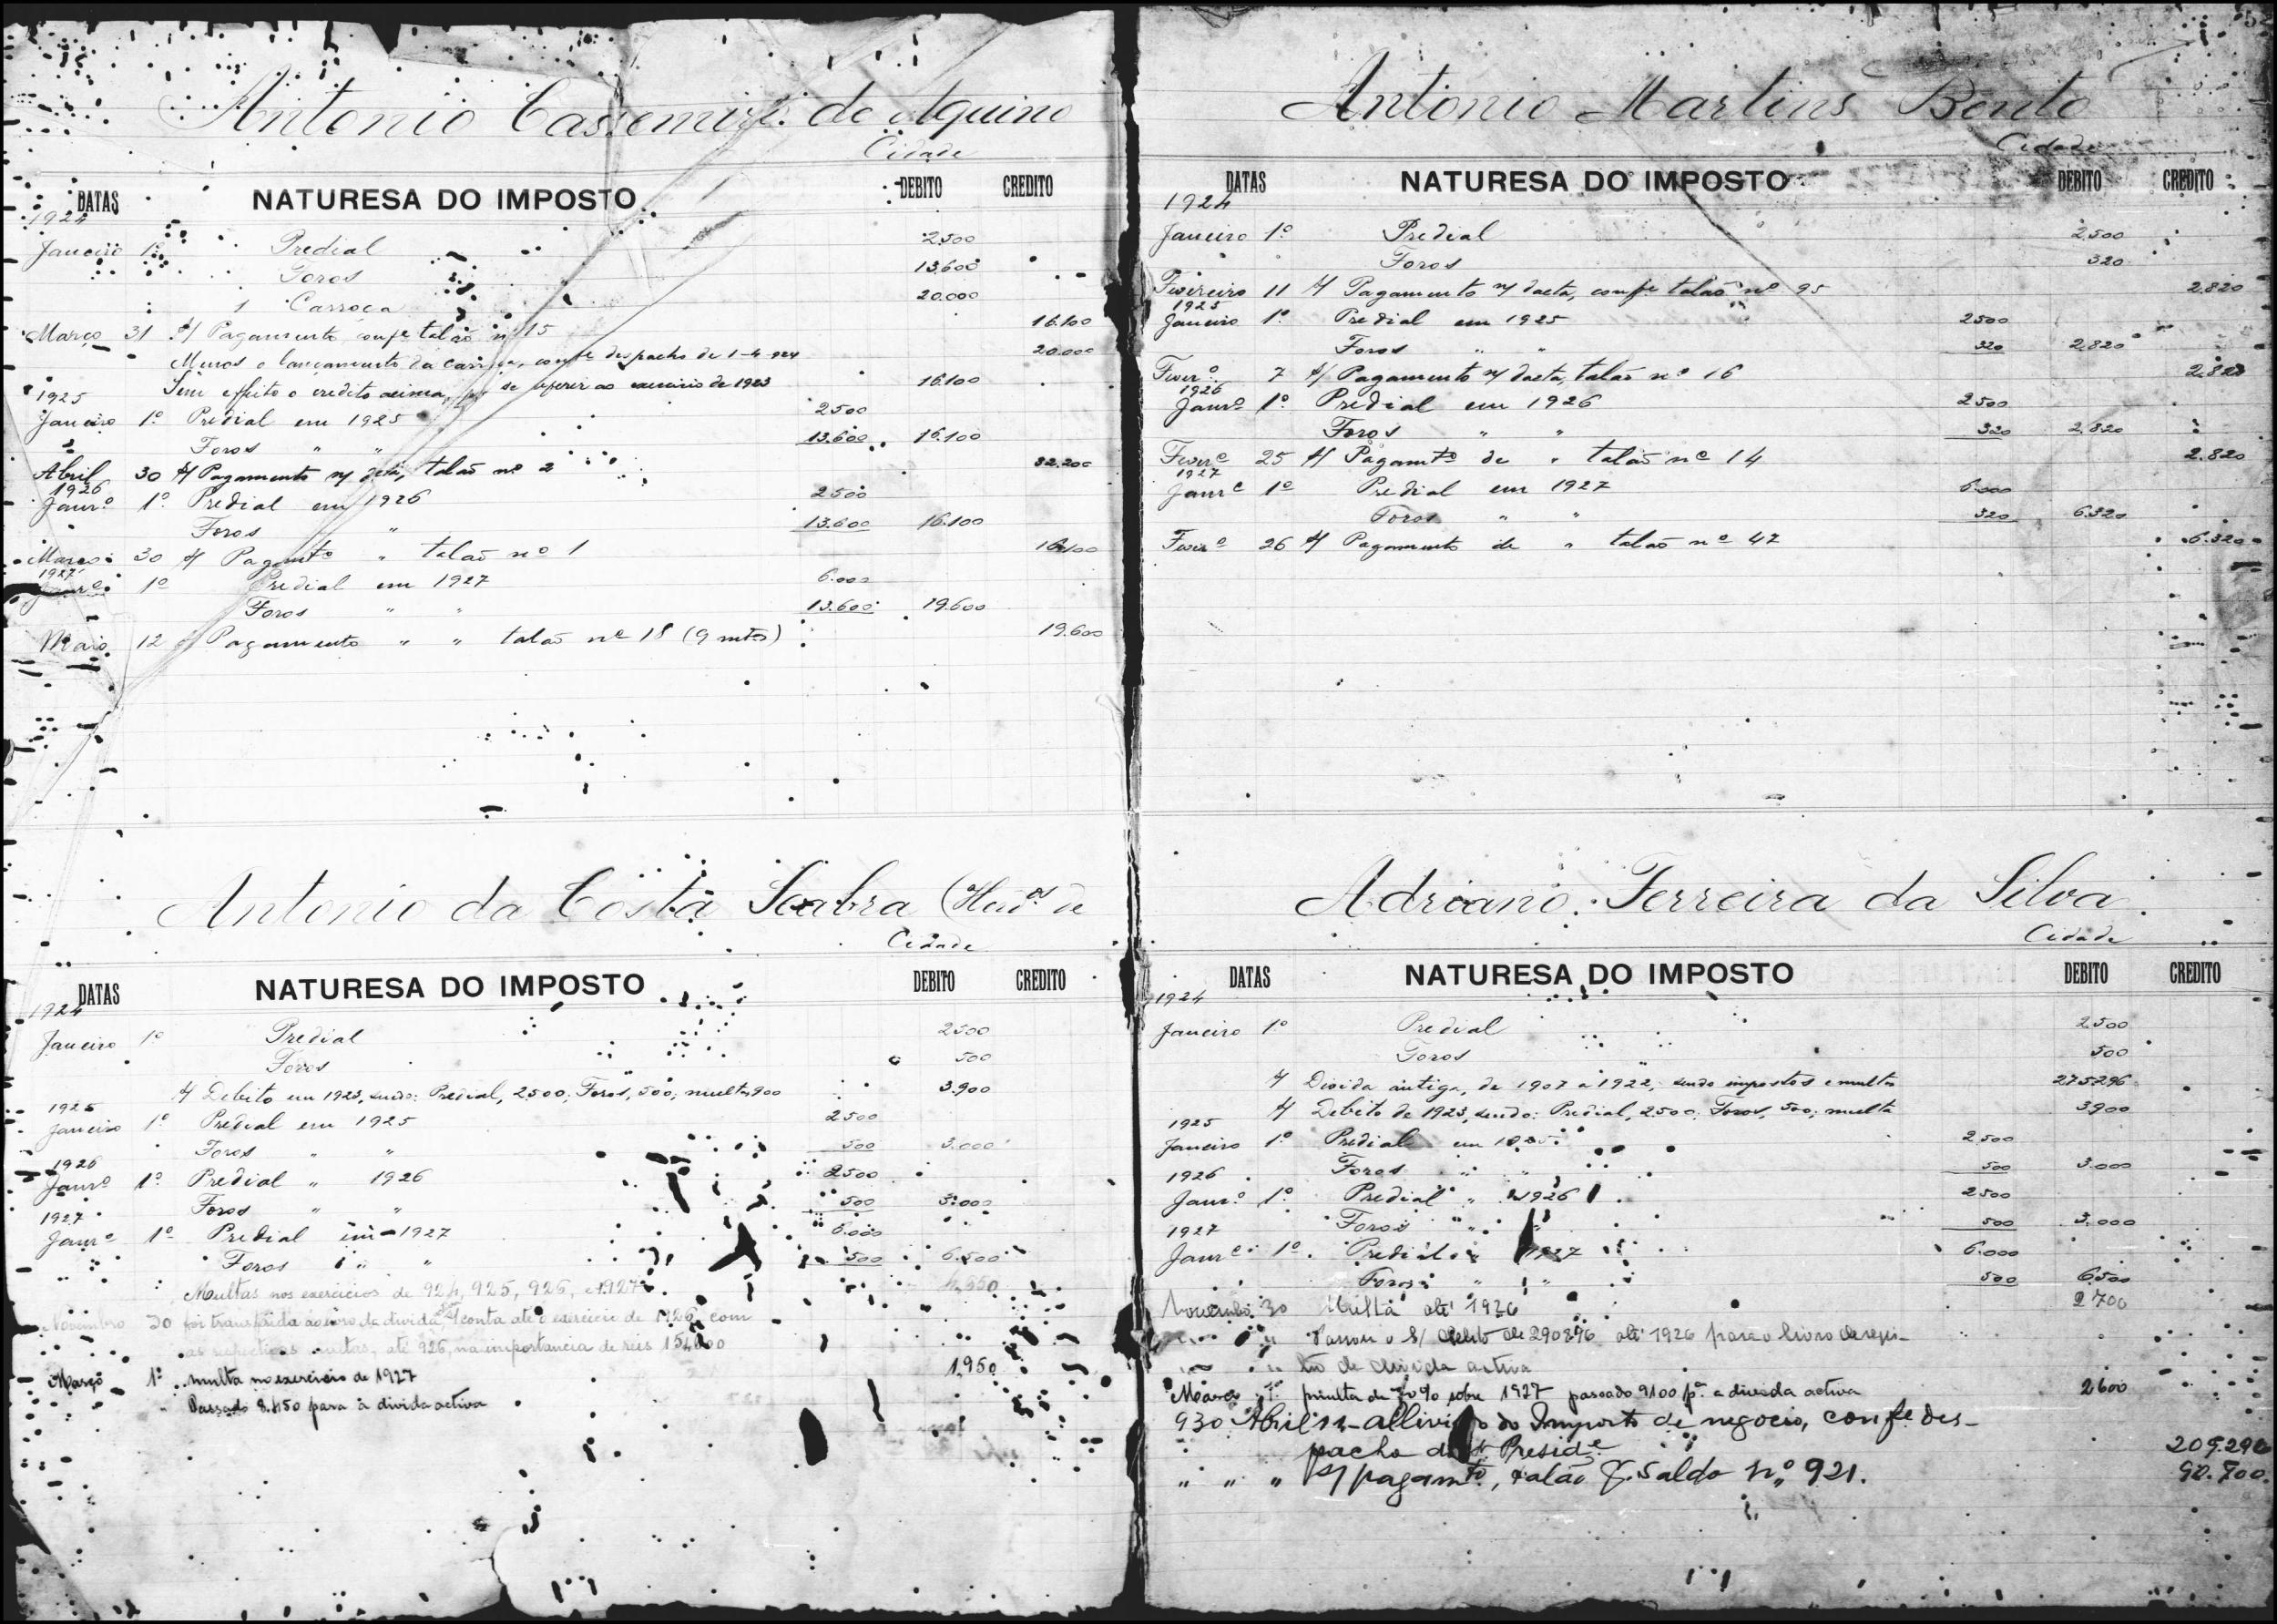 Antonio Cassemiro de Aquino
Cidade
DATAS NATURESA DO IMPOSTO DEBITO CREDITO
1924
Janeiro 1º Predial 2.500
Foros 13.600
1 Carroça 20.000
Março 31 S/ Pagamento, confe talão nº 15 16.100
Menos o lançamento da carroça, confe despacho de 1-4-924 20.000
Sem effeito o credito acima, se referir ao exercicio de 1923 16.100
1925
Janeiro 1º Predial em 1925 2500
Foros " " 13.600 16.100
Abril 30 S/ Pagamento n/ data, talão nº 2 32.200
1926
Janrº 1º Predial em 1926 2500
Foros " 13.600 16.100
Março 30 S/ Pagamto " talão nº 1 16.100
1927
Janrº 1º Predial em 1927 6.000
Foros " " 13.600 19.600
Maio 12 S/ Pagamento " " talão nº 18 (9 mtrs) 19.600
Antonio da Costa Seabra (Herdos de
Cidade
DATAS NATURESA DO IMPOSTO DEBITO CREDITO
1924
Janeiro 1º Predial 2500
Foros 500
S/ Debito em 1923, sendo: Predial, 2500; Foros, 500; multa 900 3.900
1925
Janeiro 1º Predial em 1925 2500
Foros " " 500 3.000
1926
Janrº 1º Predial " 1926 2500
Foros " " 500 3.000
1927
Janrº 1º Predial em 1927 6.000
Foros " " 500 6.500
Multas nos exercicios de 924, 925, 926, e 1927
Novembro 30 foi transferida ao livro da divida a conta até o exercicio de 1926, com
as respectivas multas, até 926, na importancia de réis
Março 1º multa no exercicio de 1927 1,950
Passado 8.450 para a divida activa
Antonio Martins Bento
Cidade
DATAS NATURESA DO IMPOSTO DEBITO CREDITO
1924
Janeiro 1º Predial 2.500
Foros 320
Fevereiro 11 S/ Pagamento n/ dacta, confe talão nº 95 2.820
1925
Janeiro 1º Predial em 1925 2500
Foros " " 320 2.820
Feverº 7 S/ Pagamento n/ dacta, talão nº 16 2.820
1926
Janrº 1º Predial em 1926 2500
Foros " " 320 2.820
Feverº 25 S/ Pagamtº de " talão nº 14 2.820
1927
Janrº 1º Predial em 1927 6.000
Foros " " 320 6.320
Feverº 26 S/ Pagamento de " talão nº 47 6.320
Adriano Ferreira da Silva
Cidade
DATAS NATURESA DO IMPOSTO DEBITO CREDITO
1924
Janeiro 1º Predial 2.500
Foros 500
S/ Divida antiga, de 1907 a 1922, sendo impostos e multas 275.296
S/ Debito de 1923, sendo: Predial, 2500; Foros, 500; multa 3.900
1925
Janeiro 1º Predial em 1925 2.500
Foros " " 500 3.000
1926
Janrº 1º Predial " 1926 2500
Foros " " 500 3.000
1927
Janrº 1º Predial " 1927 6.000
Foros " " 500 6.500
Novembro 30 Multa até 1926 2.700
" " Passou o S/ debito de 290896 até 1926 para o livro de regis-
" " tro de divida activa
Março 1º multa de sobre 1927 passado 9100 pª a divida activa 2600
930 Abril 12 - Allivio do Imposto de negocio, confe des-
pacho do Preside 209.296
" " " S/ pagamto, talão saldo nº 921. 90.700.